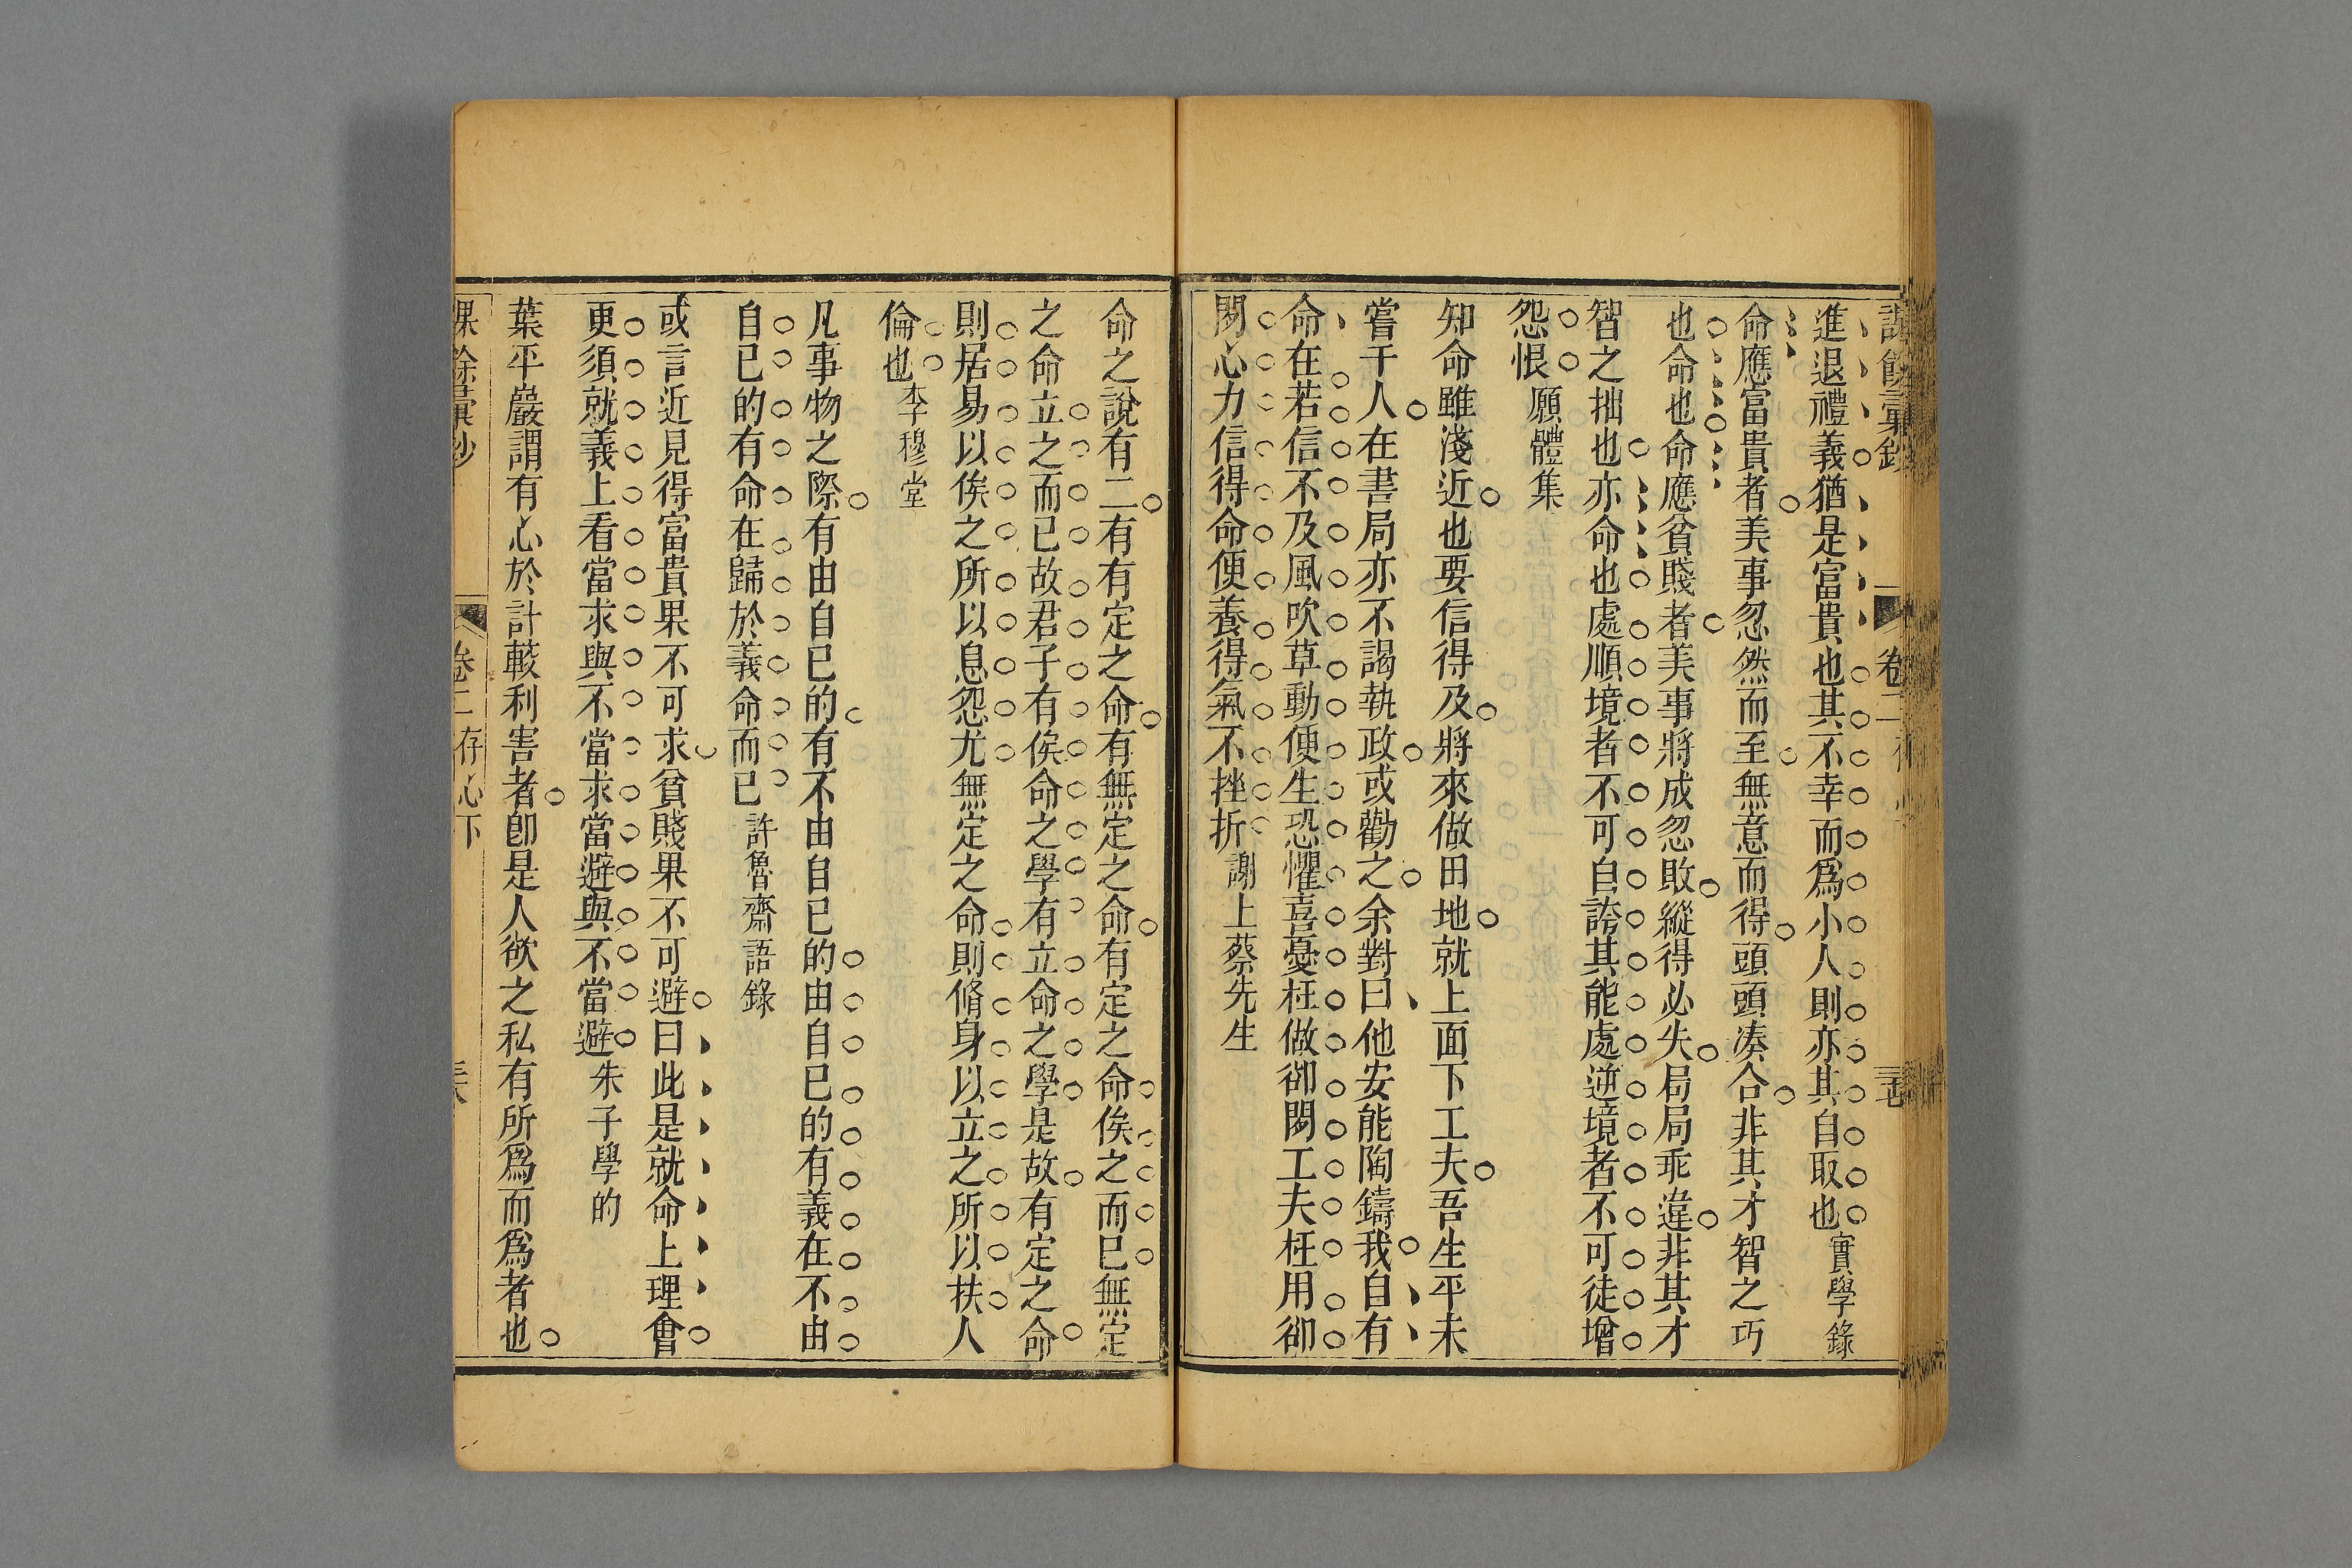 進退禮義猶是富貴也其不幸而爲小人則亦其自取也實學錄
命應富貴者美事忽然而至無意而得頭頭凑合非其才智之巧
也命也命應貧賤者美事將成忽敗縱得必失局局乖違非其才
智之拙也亦命也處順境者不可自誇其能處逆境者不可徒增
怨恨願體集
知命雖淺近也要信得及將來做田地就上面下工夫吾生平未
嘗干人在書局亦不謁執政或勸之余對曰他安能陶鑄我自有
命在若信不及風吹草動便生恐懼喜憂枉做卻閒工夫枉用卻
閒心力信得命便養得氣不挫折謝上蔡先生
命之說有二有有定之命有無定之命有定之命俟之而已無定
之命立之而已故君子有俟命之學有立命之學是故有定之命
則居易以俟之所以息怨尤無定之命則脩身以立之所以扶人
倫也李穆堂
凡事物之際有由自已的有不由自已的由自已的有義在不由
自已的有命在歸於義命而已許魯齋語錄
或言近見得富貴果不可求貧賤果不可避曰此是就命上理會
更須就義上看當求與不當求當避與不當避朱子學的
葉平巖謂有心於計較利害者卽是人欲之私有所爲而爲者也
卷二 存心下